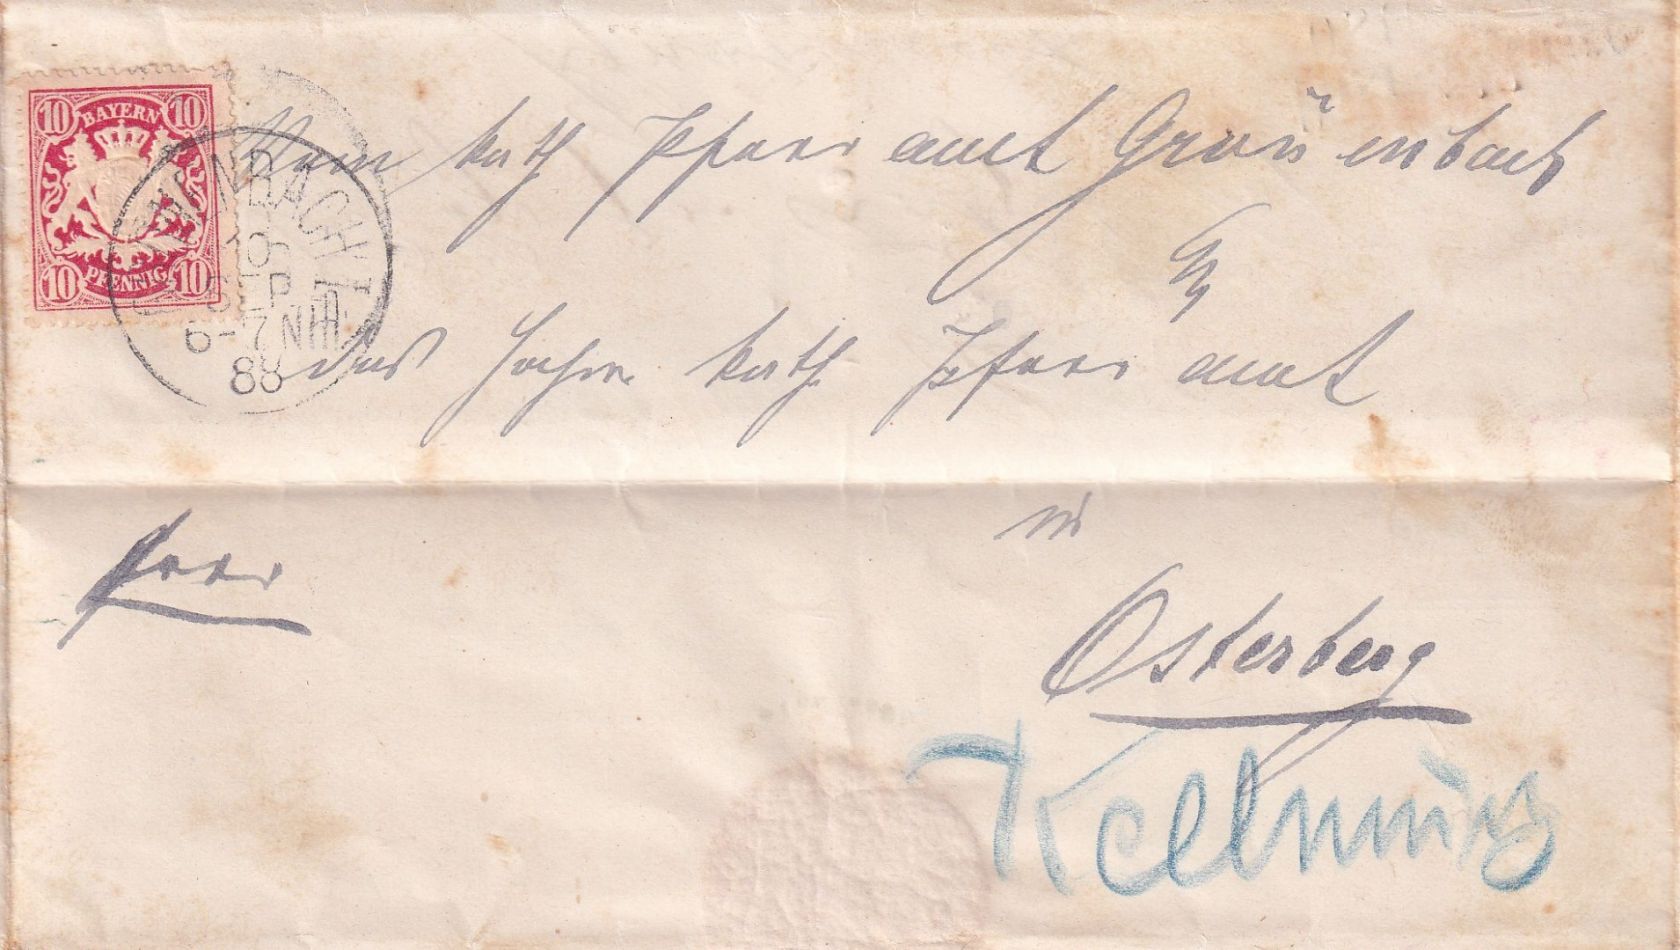 10 BAYERN 10
10 PFENNIG 10
10
SEP
6-7 NM
88
Vom kath Pfarramt Grünenbach
An
das hochw. kath. Pfarramt
in
Osterberg
Kellmünz